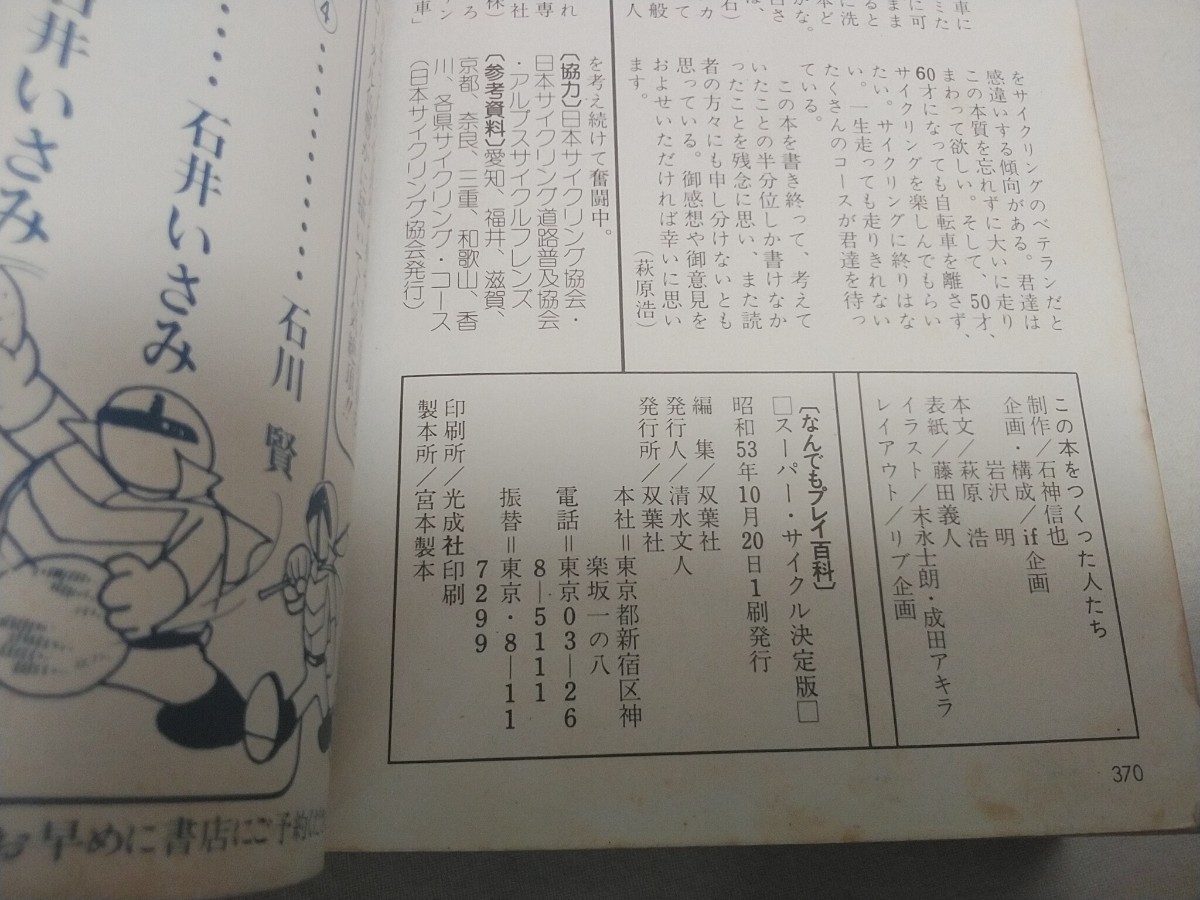 をサイクリングのベテランだと
感違いする傾向がある。君達は
この本質を忘れずに大いに走り
まわって欲しい。そして、50才、
60才になっても自転車を離さず、
サイクリングを楽しんでもらい
たい。サイクリングに終りはな
い。一生走っても走りきれない
たくさんのコースが君達を待っ
ている。
この本を書き終って、考えて
いたことの半分位しか書けなか
ったことを残念に思い、また読
者の方々にも申し分けないとも
思っている。御感想や御意見を
およせいただければ幸いに思い
ます。
(萩原浩)
を考え続けて奮闘中。
〔協力〕日本サイクリング協会・
日本サイクリング道路普及協会
・アルプスサイクルフレンズ
〔参考資料〕愛知、福井、滋賀、
京都、奈良、三重、和歌山、香
川、各県サイクリング・コース
(日本サイクリング協会発行)
この本をつくった人たち
制作/石神信也
企画・構成/if企画
岩沢 明
本文/萩原 浩
表紙/藤田義人
イラスト/末永士朗・成田アキラ
レイアウト/リブ企画
〔なんでもプレイ百科〕
□スーパー・サイクル決定版□
昭和53年10月20日1刷発行
編 集/双葉社
発行人/清水文人
発行所/双葉社
本社=東京都新宿区神
楽坂一の八
電話=東京03—26
8—5111
振替=東京・8—11
7299
印刷所/光成社印刷
製本所/宮本製本
370
④
石川 賢
石井いさみ
石井いさみ
お早めに書店にご予約